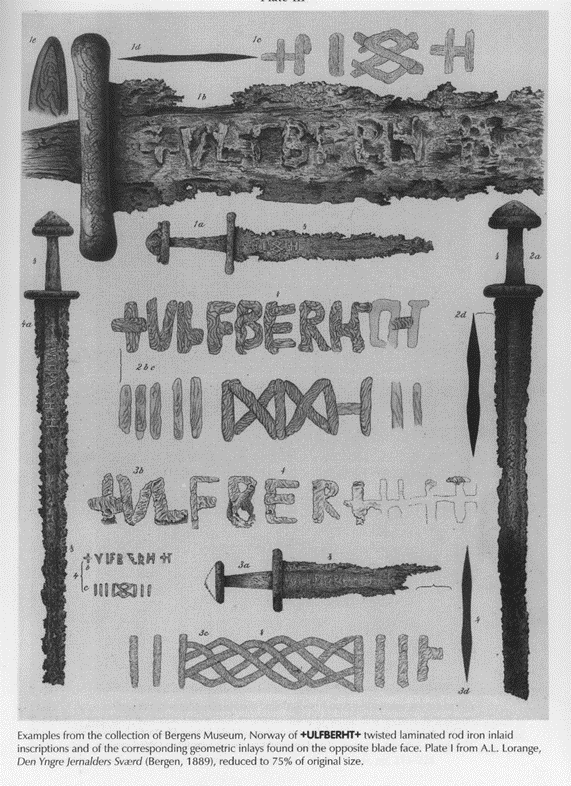 Plate III
1e
1d
1c
1b
1a
2a
4a
+VLFBERH+
2d
2 b c
3b
+VLFBER
+VLFBERH+
4
b
c
3a
3c
3d
Examples from the collection of Bergens Museum, Norway of +ULFBERHT+ twisted laminated rod iron inlaid
inscriptions and of the corresponding geometric inlays found on the opposite blade face. Plate I from A.L. Lorange,
Den Yngre Jernalders Sværd (Bergen, 1889), reduced to 75% of original size.